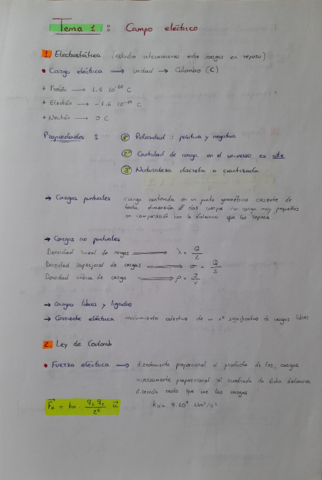 Tema 1 : Campo eléctrico
1. Electrostática (estudia interacciones entre cargas en reposo)
• Carga eléctrica → unidad → Culombio (C)
+ Protón → 1.6 10⁻¹⁹ C
+ Electrón → -1.6 10⁻¹⁹ C
+ Neutrón → 0 C
Propiedades : 1º Polaridad : positiva y negativa
2º Cantidad de carga en el universo es cte
3º Naturaleza discreta o cuantizada
→ Cargas puntuales carga contenida en un punto geométrico carente de
toda dimensión
en comparación con la distancia que los separa
→ Cargas no puntuales
Densidad lineal de cargas → λ = Q/L
Densidad superficial de cargas → σ = Q/S
Densidad cúbica de cargas → ρ = Q/
→ Cargas libres y ligadas
→ Corriente eléctrica movimiento colectivo de un nº significativo de cargas libres
2. Ley de Coulomb
• Fuerza eléctrica → directamente proporcional al producto de las cargas
inversamente proporcional al cuadrado de dicha distancia
dirección radio que une las cargas